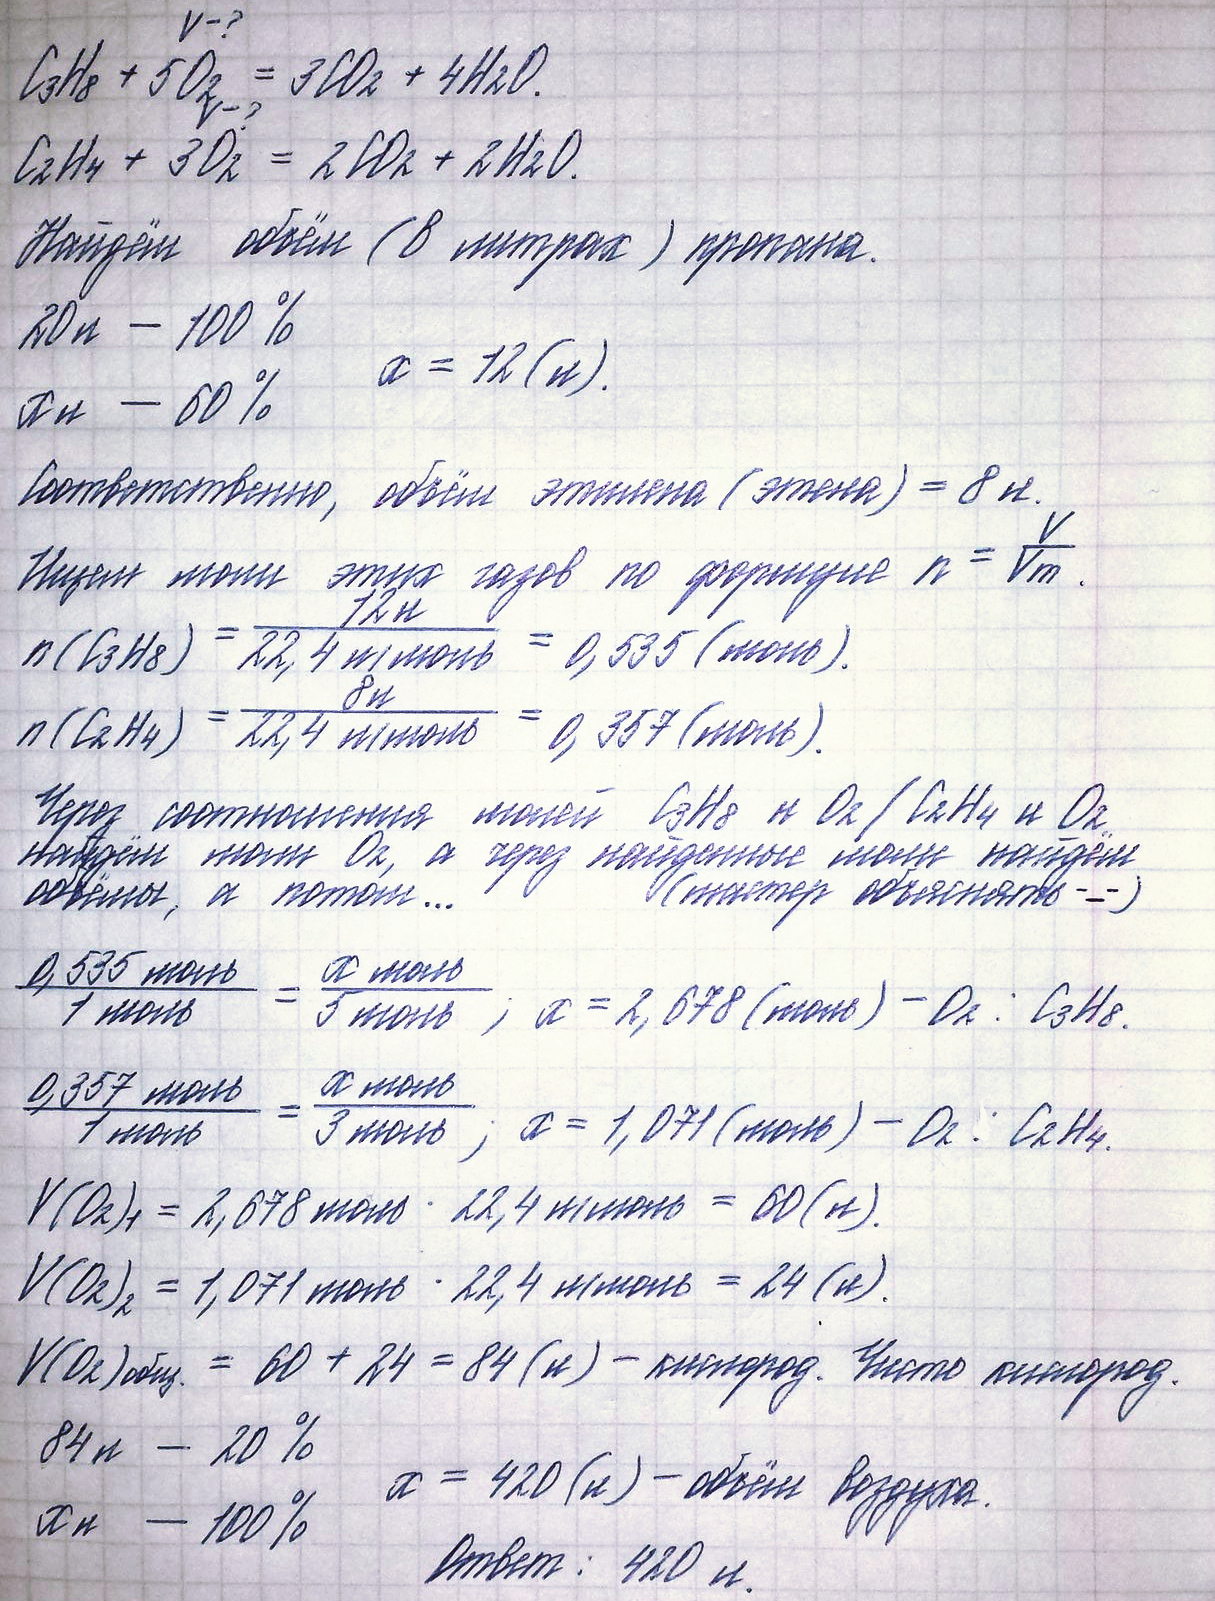 V-?
C3H8 + 5O2 = 3CO2 + 4H2O.
V-?
C2H4 + 3O2 = 2CO2 + 2H2O.
Найдём объём (в литрах) пропана.
20л — 100%
x = 12(л).
xл — 60%
Соответственно, объём этилена (этена) = 8л.
Ищем моли этих газов по формуле n = V/Vm.
n(C3H8) = 12л/22,4 л/моль = 0,535 (моль).
n(C2H4) = 8л/22,4 л/моль = 0,357 (моль).
Через соотношения молей C3H8 и O2/C2H4 и O2
найдём моли O2, а через найденные моли найдём
объёмы, а потом... (мастер объяснять -_-)
0,535 моль/1 моль = x моль/5 моль; x = 2,678 (моль) - O2 : C3H8.
0,357 моль/1 моль = x моль/3 моль; x = 1,071 (моль) - O2 : C2H4.
V(O2)1 = 2,678 моль · 22,4 л/моль = 60(л).
V(O2)2 = 1,071 моль · 22,4 л/моль = 24 (л).
V(O2)общ. = 60 + 24 = 84 (л) - кислород. Чисто кислород.
84л — 20%
x = 420 (л) - объём воздуха.
xл — 100%
Ответ: 420 л.